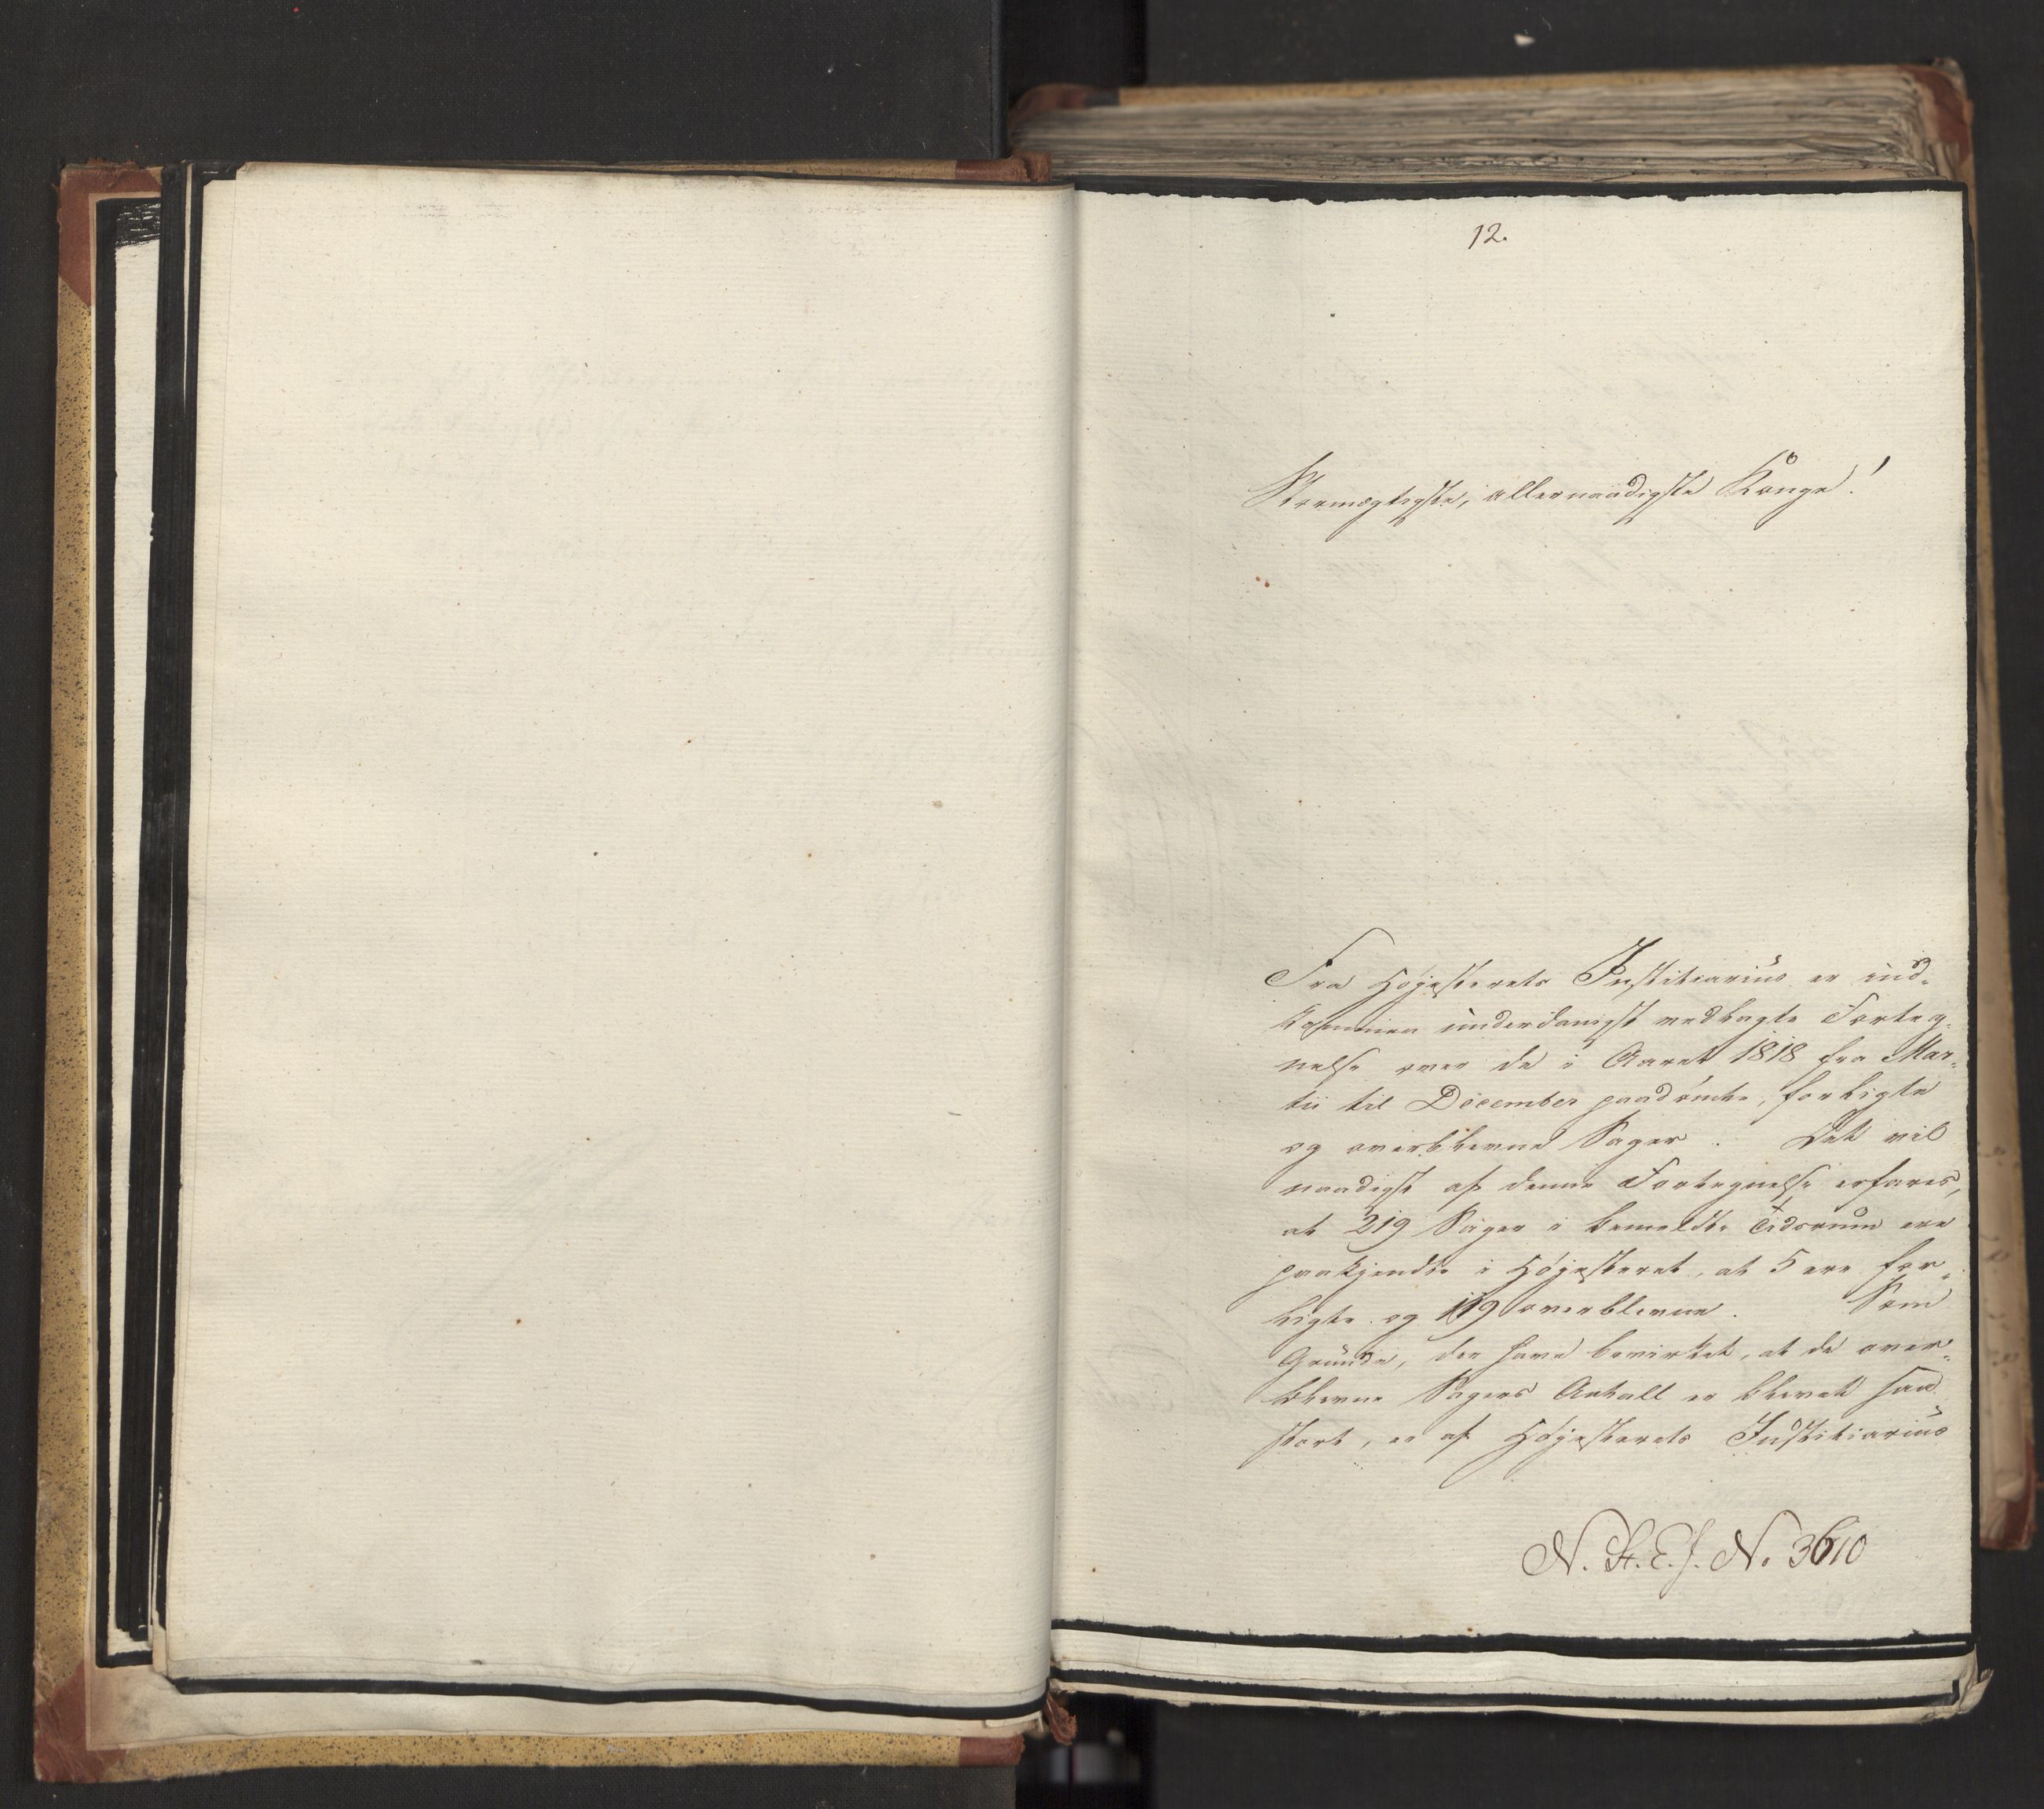 12.
Stormægtigste, allernaadigste Konge!
Fra Høiesterets Justitiarius er ind-
kommen underdanigst vedlagte Forteg-
nelse over de i Aaret 1818 fra Mar-
tii til December paadömte, forligte
og overblevne Sager. Det vil
naadigst af denne Fortegnelse erfares,
at 219 Sager i bemeldte Tidsrum ere
paakjendte i Høiesteret, at 5 ere for-
ligte og 119 overblevne. Som
Grunde, der have bevirket, at de over-
blevne Sagers Antall er blevet saa
stort, er af Høiesterets Justitiarius
N. St. E. J. No. 3610